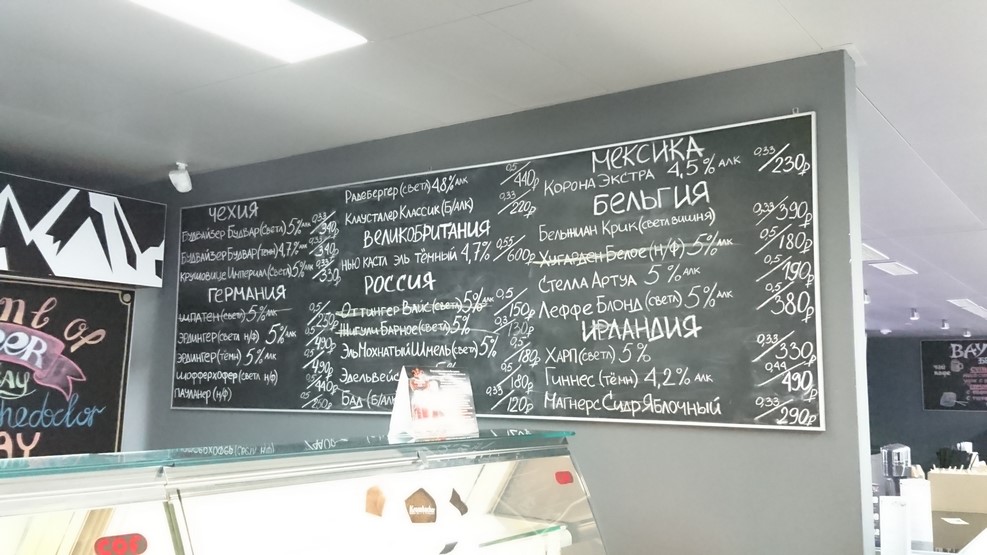 ЧЕХИЯ
БУДВАЙЗЕР БУДВАР (СВЕТЛ) 5% АЛК 0,33/340р
БУДВАЙЗЕР БУДВАР (ТЕМН) 4,7% АЛК 0,33/340р
КРУШОВИЦЕ ИМПЕРИАЛ (СВЕТЛ) 5% АЛК 0,33/330р
ГЕРМАНИЯ
ШПАТЕН (СВЕТЛ) 5% АЛК 0,5/250р
ЭРДИНГЕР (СВЕТЛ Н/Ф) 5% АЛК 0,5/490р
ЭРДИНГЕР (ТЁМН) 5% АЛК 0,5/490р
ШОФФЕРХОФЕР (СВЕТЛ Н/Ф) 0,5/440р
ПАУЛАНЕР (Н/Ф) 0,5
РАДЕБЕРГЕР (СВЕТЛ) 4,8% АЛК 0,5/440р
КЛАУСТАЛЕР КЛАССИК (Б/АЛК) 0,33/220р
ВЕЛИКОБРИТАНИЯ
НЬЮ КАСТЛ ЭЛЬ ТЁМНЫЙ 4,7% 0,55/600р
РОССИЯ
ОТТИНГЕР ВАЙС (СВЕТЛ) 5% АЛК 0,5/150р
ЖИГУЛИ БАРНОЕ (СВЕТЛ) 5% 0,5/130р
ЭЛЬ МОХНАТЫЙ ШМЕЛЬ (СВЕТЛ) 5% 0,5/180р
ЭДЕЛЬВЕЙС 0,5/180р
БАД (Б/АЛК) 0,33/120р
МЕКСИКА
КОРОНА ЭКСТРА 4,5% АЛК 0,33/230р
БЕЛЬГИЯ
БЕЛЬЖИАН КРИК (СВЕТЛ ВИШНЯ) 0,33/390р
ХУГАРДЕН БЕЛОЕ (Н/Ф) 5% АЛК 0,5/180р
СТЕЛЛА АРТУА 5% АЛК 0,5/190р
ЛЕФФЕ БЛОНД (СВЕТЛ) 5% АЛК 0,5/380р
ИРЛАНДИЯ
ХАРП (СВЕТЛ) 5% 0,33/330р
ГИННЕС (ТЁМН) 4,2% АЛК 0,44/490р
МАГНЕРС СИДР ЯБЛОЧНЫЙ 0,33/290р
ЧАЙ
КОФЕ